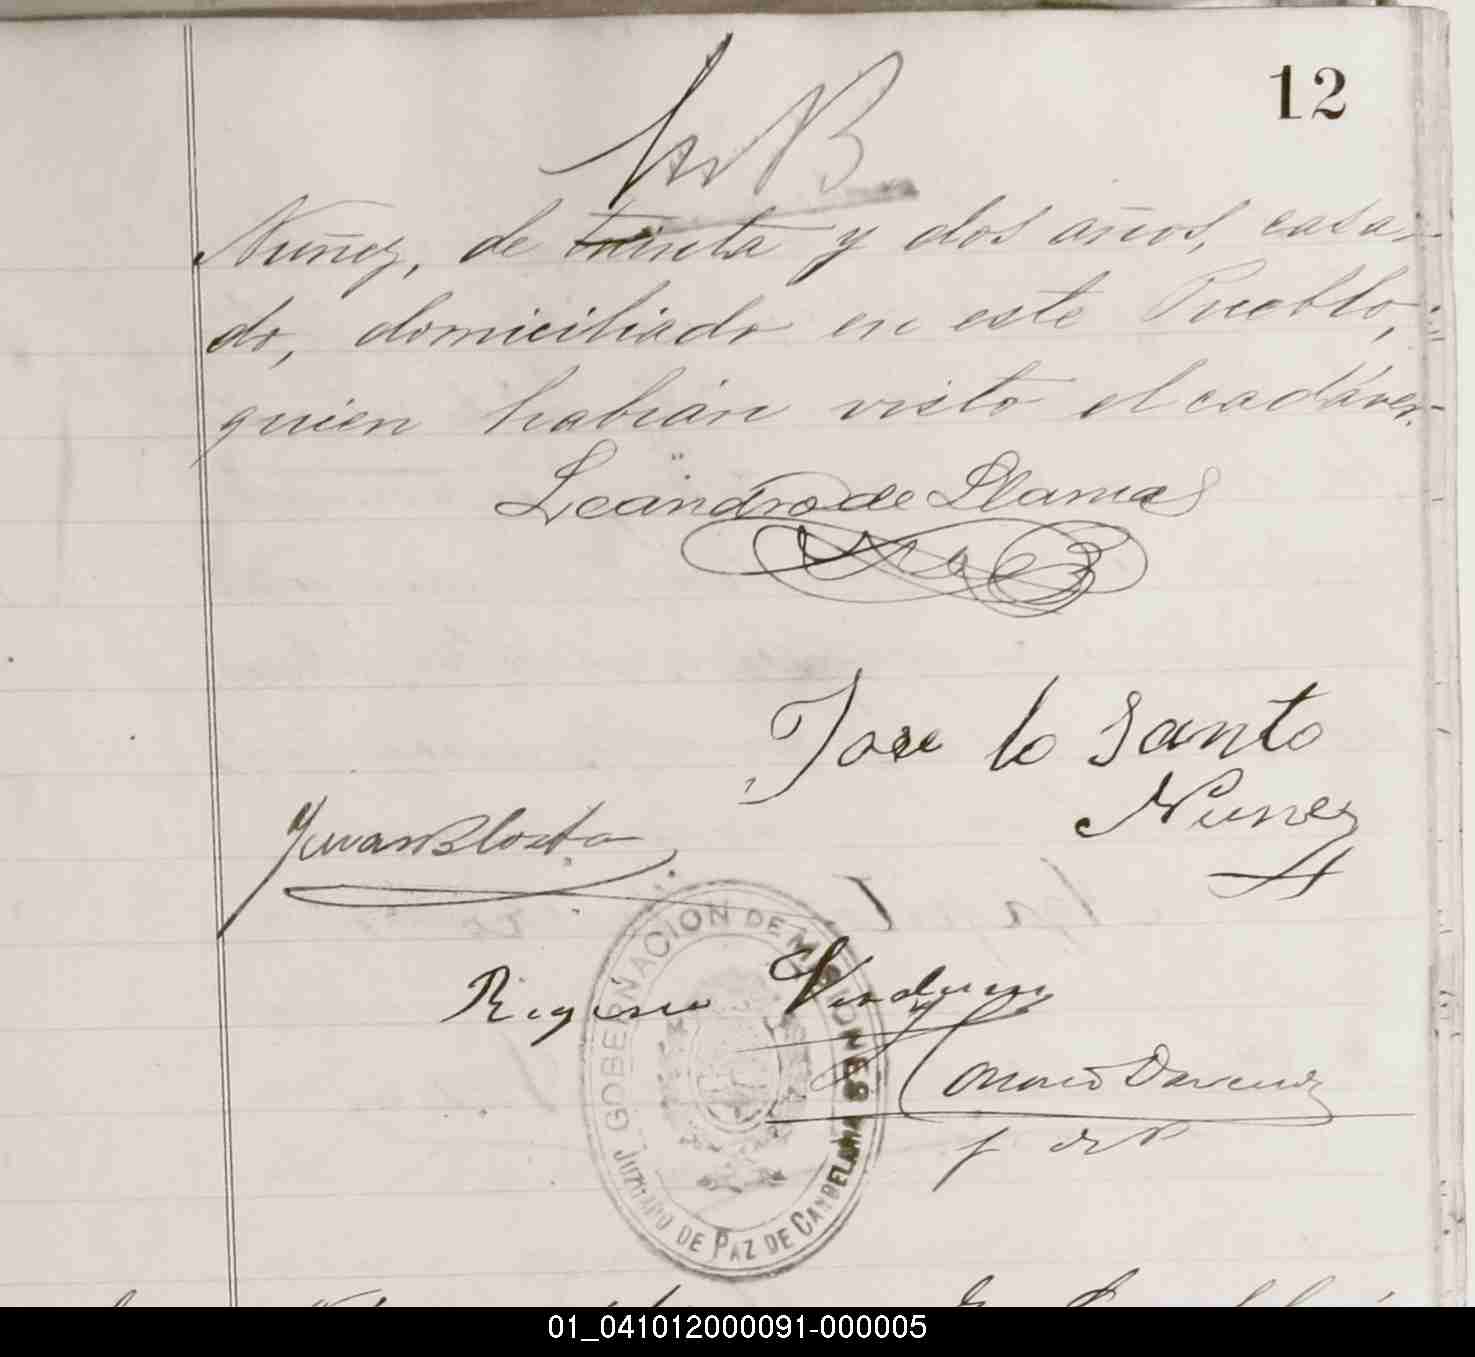 12
Nuñez, de treinta y dos años, casa-
do, domiciliado en este Pueblo,
quien habián visto el cadáver.
Leandro de Llamas
Jose lo Santo
Nunez
Juan B Costa
GOBERNACION DE MISIONES
Verdun
JUZGADO DE PAZ DE CANDELARIA
J de P
01_041012000091-000005